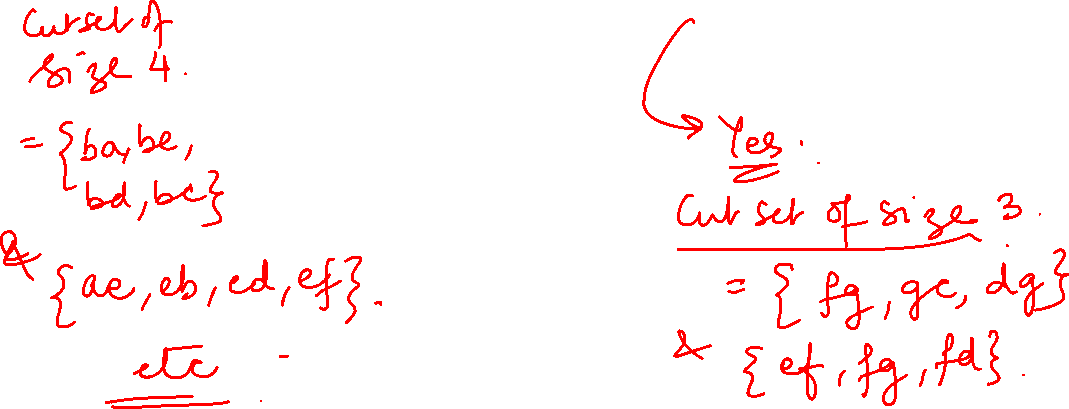 Cutset of
size 4.
= {ba, be,
bd, bc}
& {ae, eb, ed, ef}.
etc.
Yes.
Cut set of size 3.
= {fg, gc, dg}
& {ef, fg, fd}.